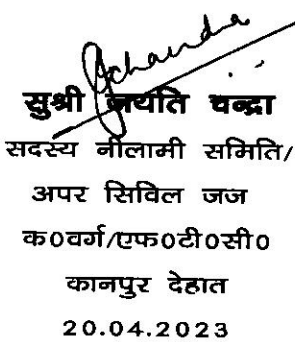 Jchandra
सुश्री जयति चन्द्रा
सदस्य नीलामी समिति/
अपर सिविल जज
क०वर्ग/एफ०टी०सी०
कानपुर देहात
20.04.2023